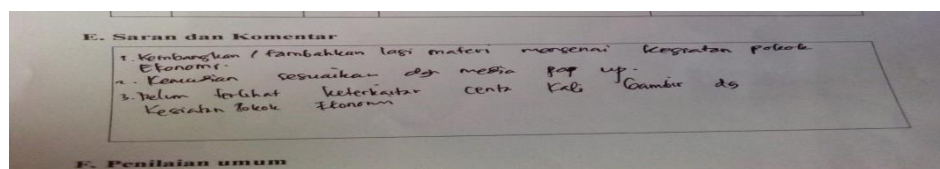 E. Saran dan Komentar
1. Kembangkan / tambahkan lagi materi mengenai kegiatan pokok
Ekonomi.
2. Kemudian sesuaikan dgn media pop up.
3. Belum terlihat keterkaitan cerita Kali Gambir dg
Kegiatan Pokok Ekonomi
F. Penilaian umum